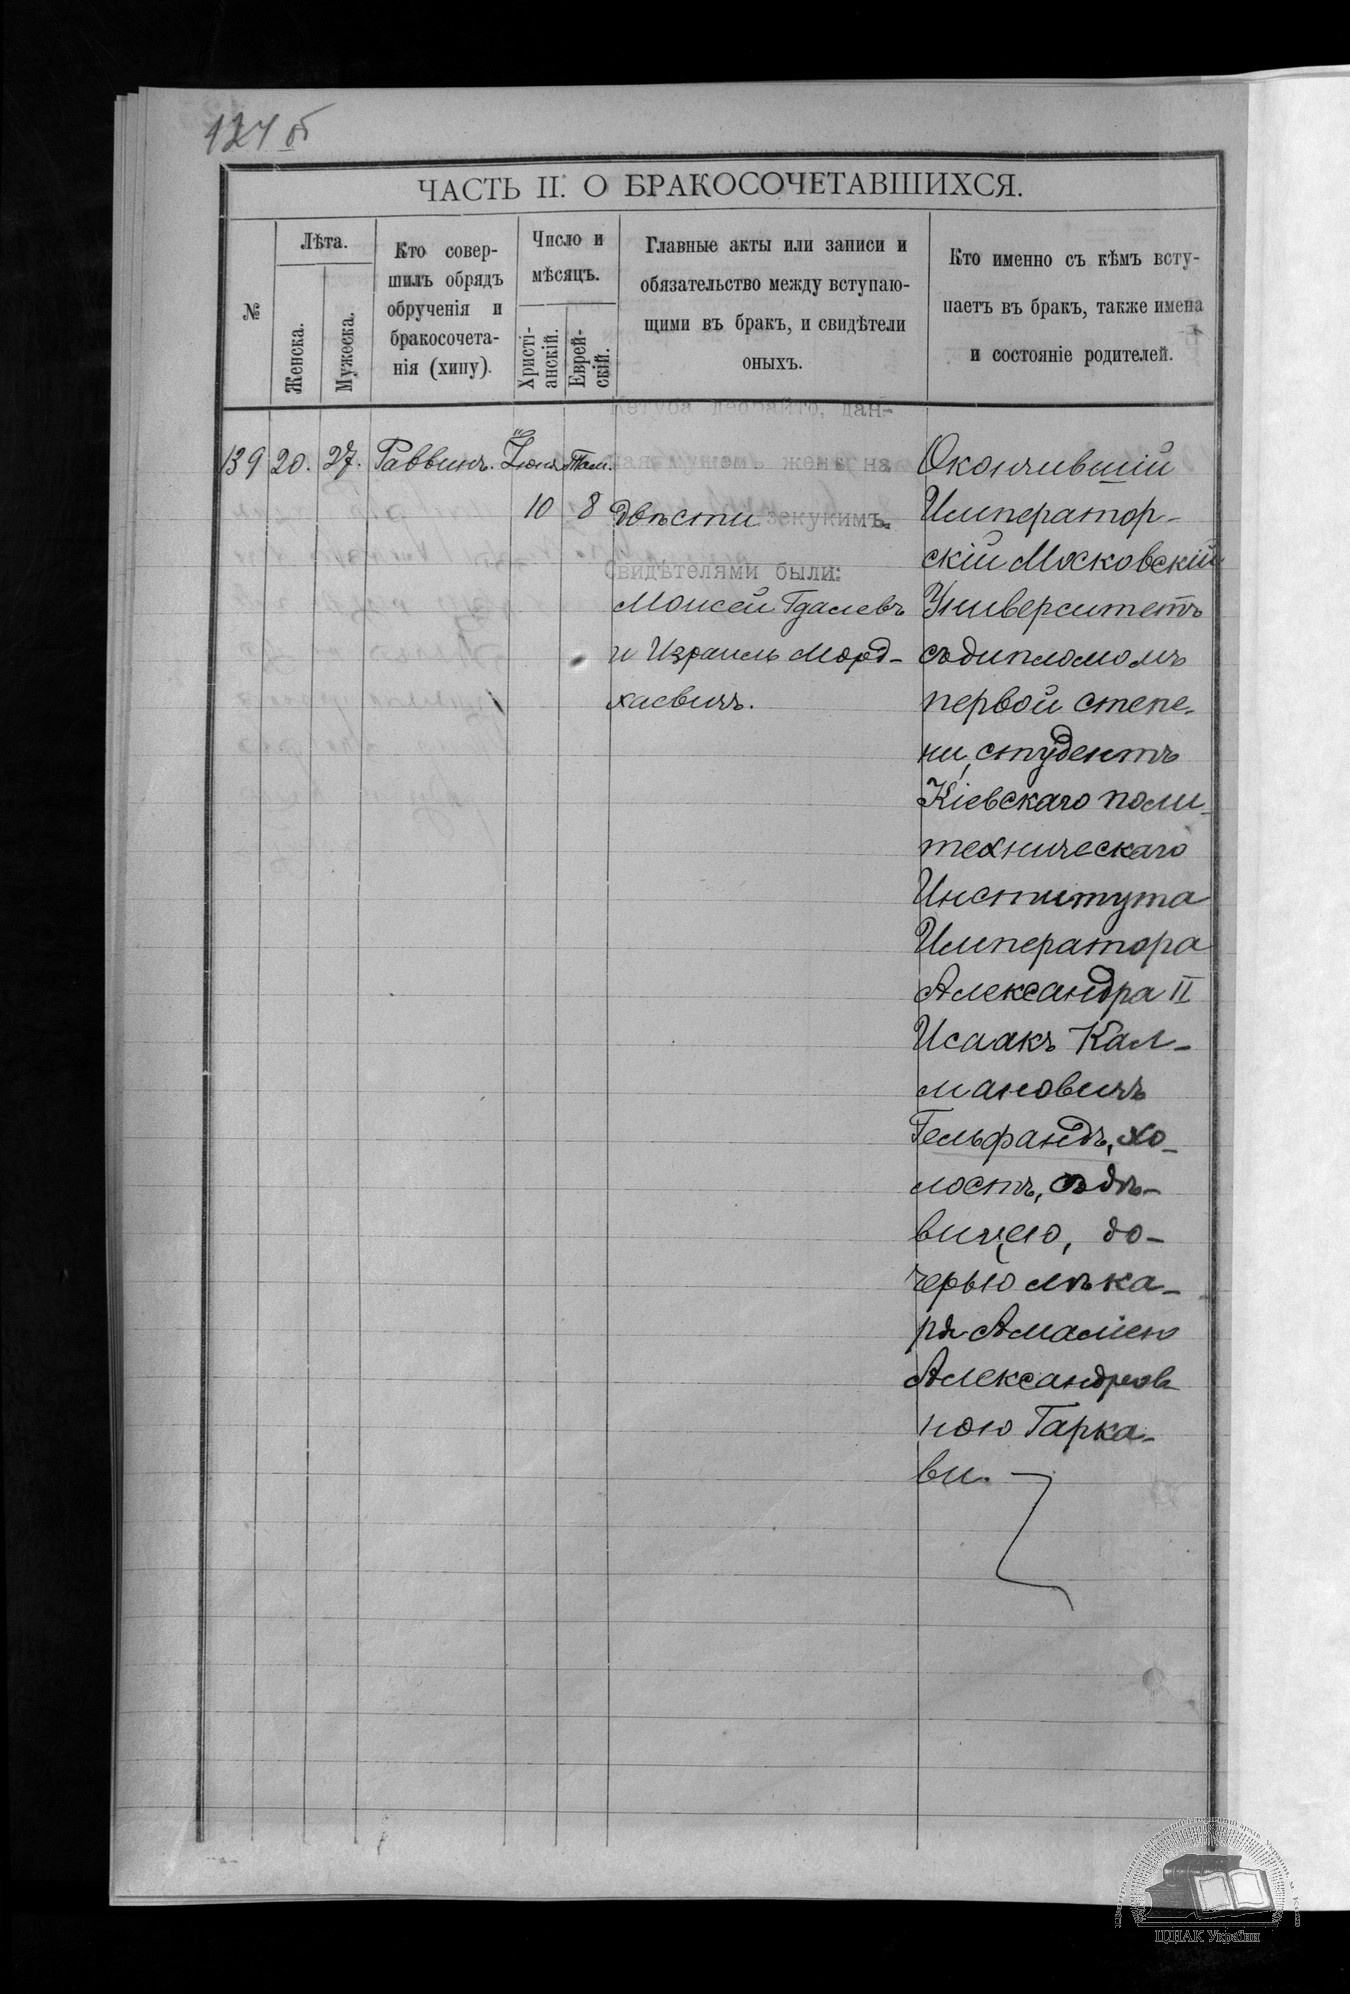 124 об
ЧАСТЬ II. О БРАКОСОЧЕТАВШИХСЯ.
№
Лѣта.
Женска.
Мужеска.
Кто совер-
шилъ обрядъ
обрученія и
бракосочета-
нія (хипу).
Число и
мѣсяцъ.
Христі-
анскій.
Еврей-
скій.
Главные акты или записи и
обязательство между вступаю-
щими въ бракъ, и свидѣтели
оныхъ.
Кто именно съ кѣмъ всту-
паетъ въ бракъ, также имена
и состояніе родителей.
139
20.
27.
Раввинъ.
Іюня
10
Там.
8
Кетуба дебрайто, дан-
ная мужемъ женѣ на
двѣсти зекукимъ.
Свидѣтелями были:
Моисей Гдалевъ
и Израиль Морд-
хаевичъ.
Окончившій
Император-
скій Московскій
Университетъ
съ дипломомъ
первой степе-
ни, студентъ
Кіевскаго поли-
техническаго
Института
Императора
Александра II
Исаакъ Кал-
мановичъ
Гельфандъ, хо-
лостъ, съ дѣ-
вицею, до-
черью лѣка-
ря Амаліею
Александров
ною Гарка-
ви.
ЦДІАК України